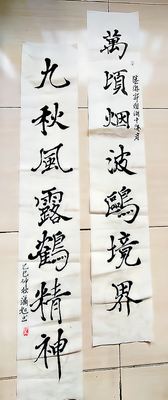 萬頃烟波鷗境界
九秋風露鶴精神
乙巳仲秋